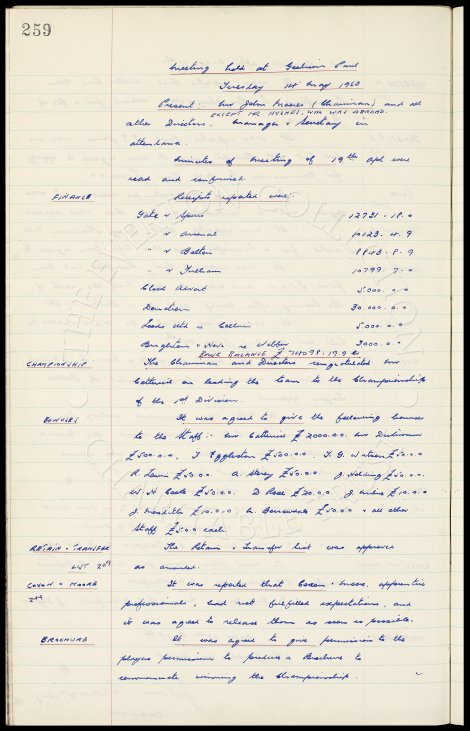 259
Meeting held at Goodison Park
Tuesday 14 May 1963
Present: Mr John Moores (Chairman) and all
EXCEPT MR HUGHES, WHO WAS ABROAD.
other Directors. Manager & Secretary in
attendance.
Minutes of Meeting of 19th Apl were
read and confirmed.
FINANCE Receipts reported were:
Gate v Spurs 12731 . 18 . 0
" v Arsenal 10123 . 4 . 9
" v Bolton 8843 . 8 . 9
" v Fulham 10799 . 7 . 0
Clock Advert 5.000 . 0 . 0
Donation 30.000 . 0 . 0
Leeds Utd re Collins 5.000 . 0 . 0
Brighton & Hove re Webber 3000 . 0 . 0
BANK BALANCE £ 74098 . 19 . 9
CHAMPIONSHIP The Chairman and Directors congratulated Mr
Catterick on leading the team to the Championship
of the 1st Division.
BONUSES It was agreed to give the following bonuses
to the Staff:- Mr Catterick £2000.0.0. Mr Dickinson
£500.0.0. T Eggleston £500.0.0. T. G. Watson £50.0.0
R Lewin £50.0.0. A. Storey £50.0.0. J. Holding £50.0.0.
W. H. Cooke £50.0.0. D Rose £20.0.0. J £10.0.0
J. £10.0.0. W. Borrowdale £50.0.0 & all other
Staff £5.0.0 each.
RETAIN & TRANSFER The Retain & Transfer list was approved
LIST as amended.
COXON & MOORE It was reported that Coxon & Moore, apprentice
professionals, had not fulfilled expectations, and
it was agreed to release them as soon as possible.
BROCHURE It was agreed to give permission to the
players permission to produce a Brochure to
commemorate winning the Championship.